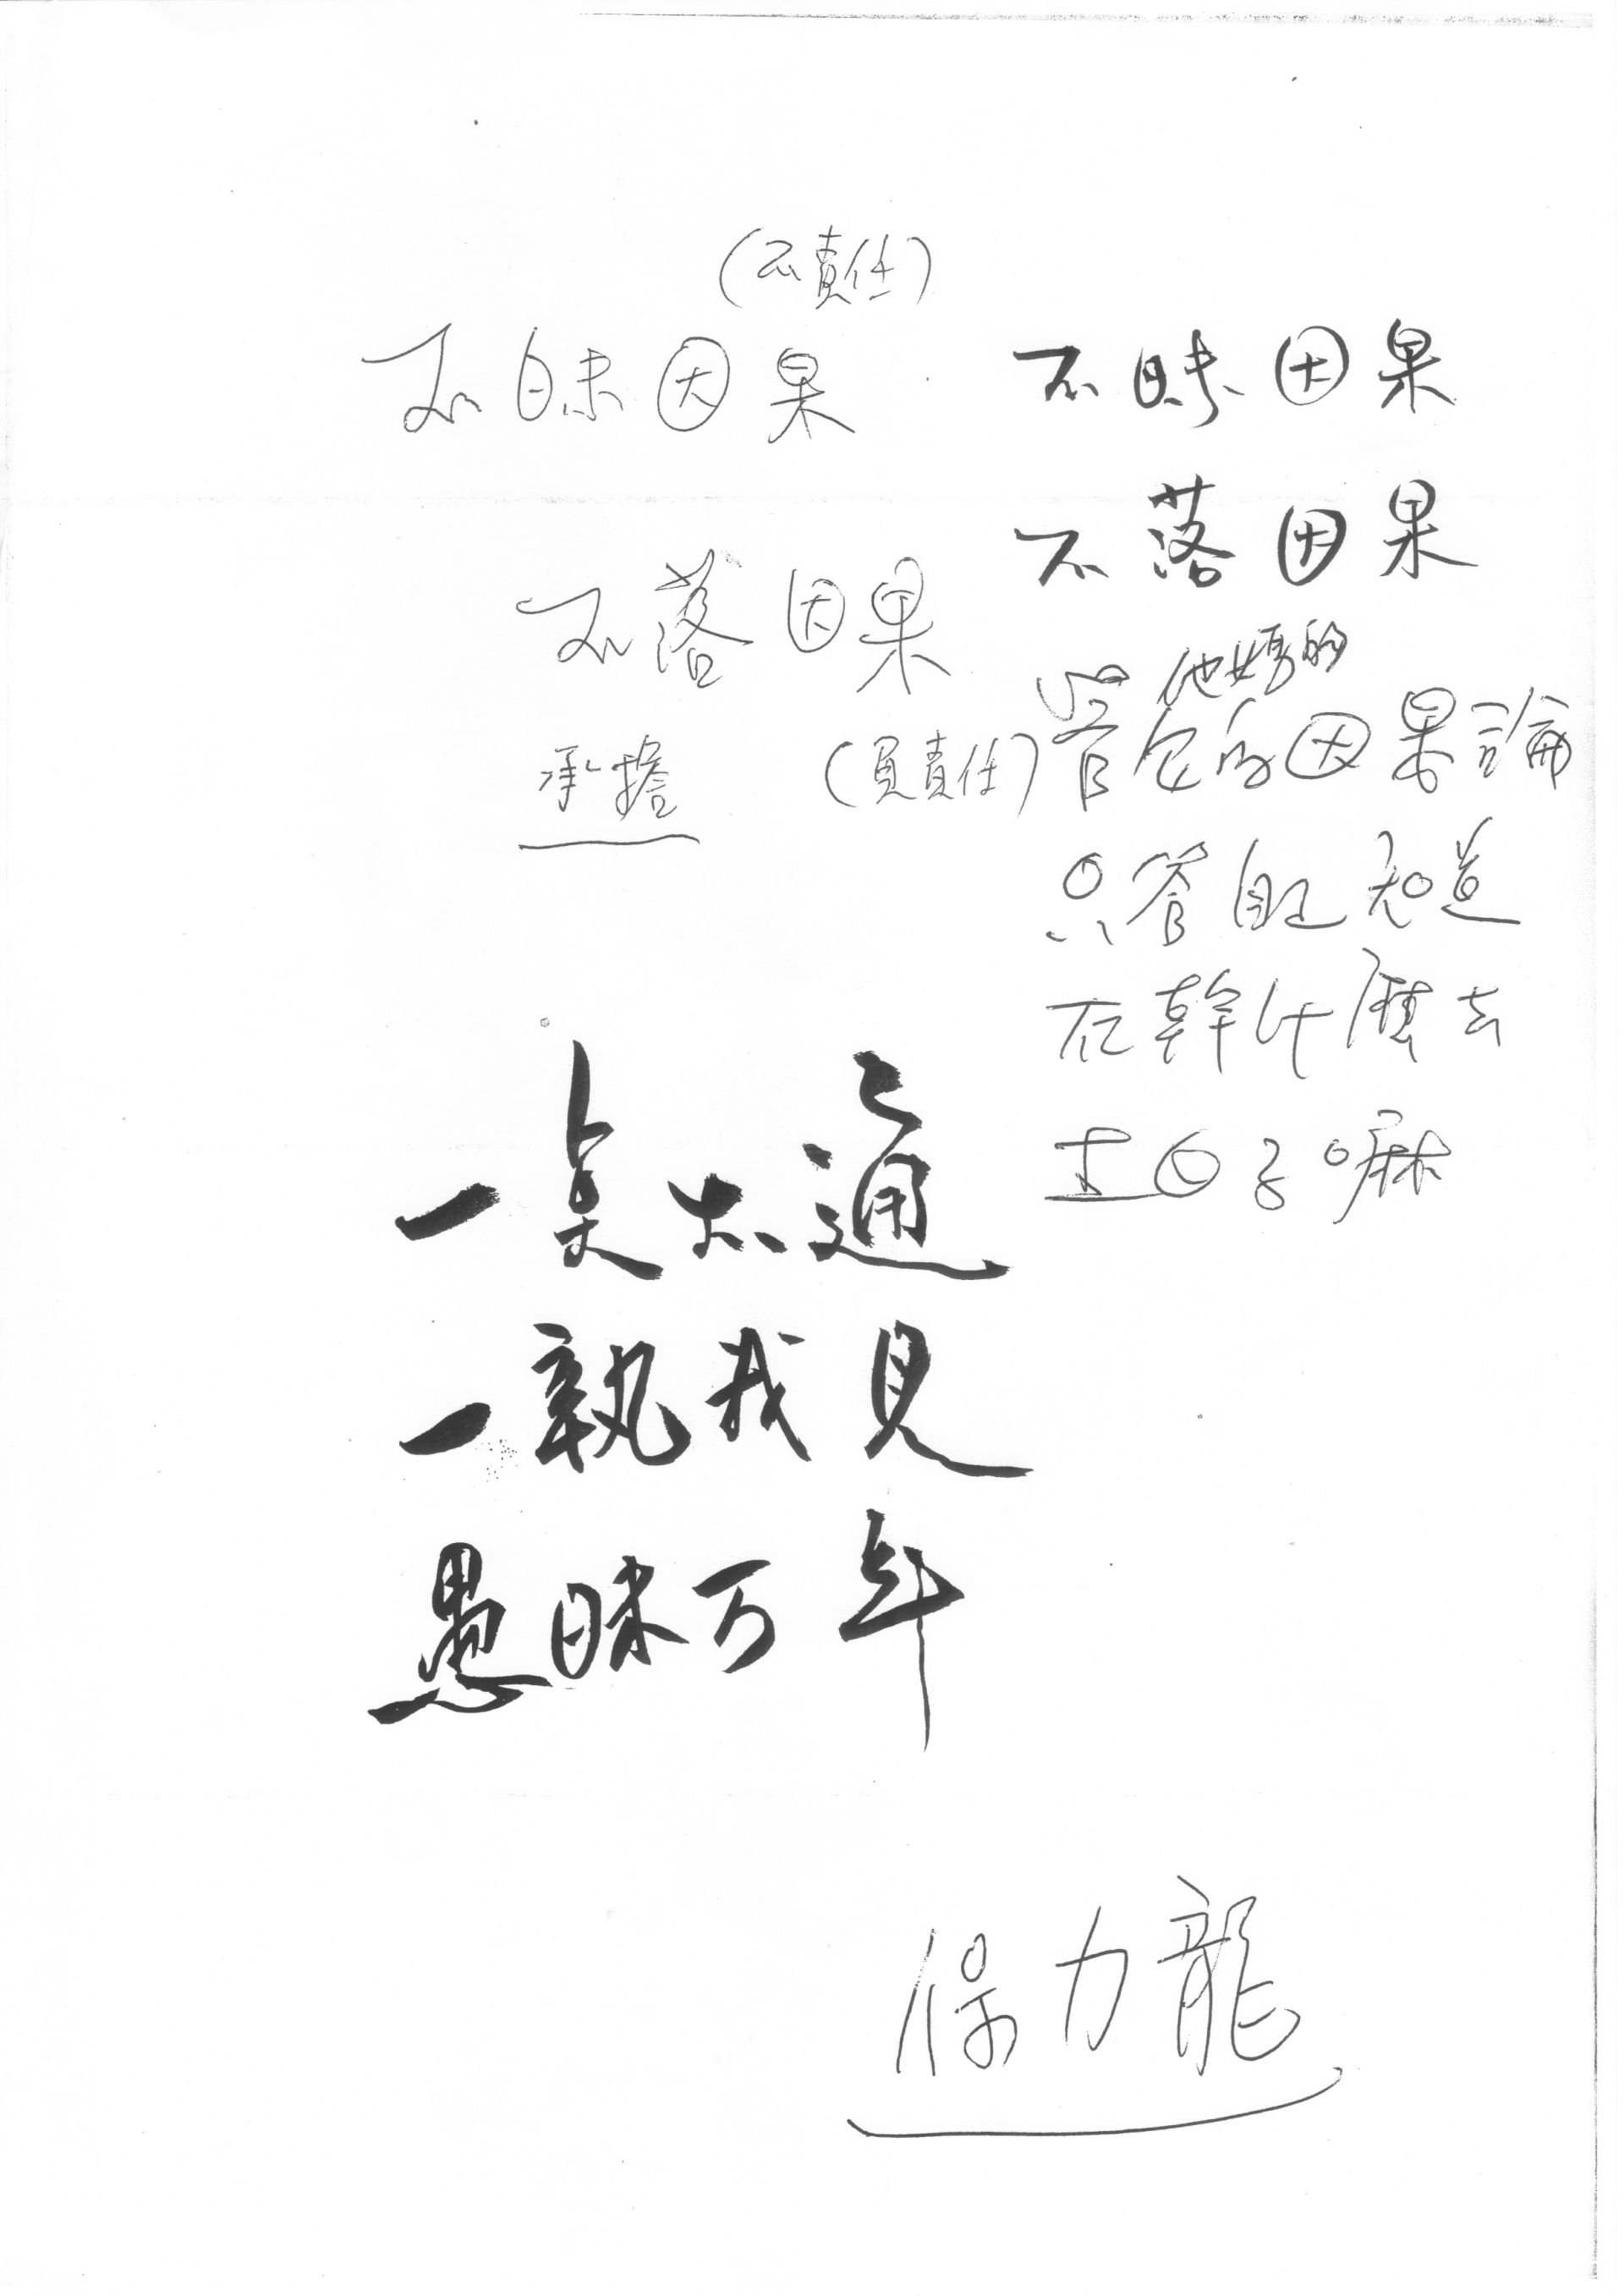 (不責任)
不昧因果
不落因果
承擔
(負責任)
不昧因果
不落因果
他媽的
管他的因果論
只管自己知道
在幹什麼去
過日子嘛
一窍不通
一執我見
愚昧万年
保力龍